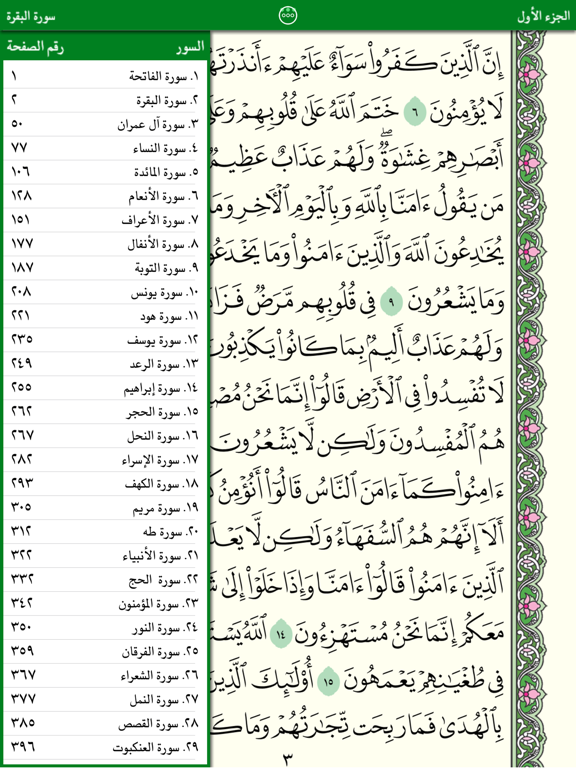 الجزء الأول
سورة البقرة
إِنَّ ٱلَّذِينَ كَفَرُوا۟ سَوَآءٌ عَلَيْهِمْ
لَا يُؤْمِنُونَ ٦ خَتَمَ ٱللَّهُ عَلَىٰ قُلُوبِهِمْ
أَبْصَٰرِهِمْ غِشَٰوَةٌۖ وَلَهُمْ عَذَابٌ عَظِيمٌ
مَن يَقُولُ ءَامَنَّا بِٱللَّهِ وَبِٱلْيَوْمِ ٱلْءَاخِرِ
يُخَٰدِعُونَ ٱللَّهَ وَٱلَّذِينَ ءَامَنُوا۟ وَمَا
وَمَا يَشْعُرُونَ ٩ فِى قُلُوبِهِم مَّرَضٌ
وَلَهُمْ عَذَابٌ أَلِيمٌۢ بِمَا كَانُوا۟ يَكْذِبُونَ
لَا تُفْسِدُوا۟ فِى ٱلْأَرْضِ قَالُوٓا۟ إِنَّمَا نَحْنُ
هُمُ ٱلْمُفْسِدُونَ وَلَٰكِن لَّا يَشْعُرُونَ
ءَامِنُوا۟ كَمَآ ءَامَنَ ٱلنَّاسُ قَالُوٓا۟ أَنُؤْمِنُ
أَلَآ إِنَّهُمْ هُمُ ٱلسُّفَهَآءُ وَلَٰكِن لَّا
ٱلَّذِينَ ءَامَنُوا۟ قَالُوٓا۟ ءَامَنَّا وَإِذَا خَلَوْا۟ إِلَىٰ
مَعَكُمْ إِنَّمَا نَحْنُ مُسْتَهْزِءُونَ ١٤ ٱللَّهُ
فِى طُغْيَٰنِهِمْ يَعْمَهُونَ ١٥ أُو۟لَٰٓئِكَ ٱلَّذِينَ
بِٱلْهُدَىٰ فَمَا رَبِحَت تِّجَٰرَتُهُمْ وَمَا
٣
السور رقم الصفحة
١. سورة الفاتحة ١
٢. سورة البقرة ٢
٣. سورة آل عمران ٥٠
٤. سورة النساء ٧٧
٥. سورة المائدة ١٠٦
٦. سورة الأنعام ١٢٨
٧. سورة الأعراف ١٥١
٨. سورة الأنفال ١٧٧
٩. سورة التوبة ١٨٧
١٠. سورة يونس ٢٠٨
١١. سورة هود ٢٢١
١٢. سورة يوسف ٢٣٥
١٣. سورة الرعد ٢٤٩
١٤. سورة إبراهيم ٢٥٥
١٥. سورة الحجر ٢٦٢
١٦. سورة النحل ٢٦٧
١٧. سورة الإسراء ٢٨٢
١٨. سورة الكهف ٢٩٣
١٩. سورة مريم ٣٠٥
٢٠. سورة طه ٣١٢
٢١. سورة الأنبياء ٣٢٢
٢٢. سورة الحج ٣٣٢
٢٣. سورة المؤمنون ٣٤٢
٢٤. سورة النور ٣٥٠
٢٥. سورة الفرقان ٣٥٩
٢٦. سورة الشعراء ٣٦٧
٢٧. سورة النمل ٣٧٧
٢٨. سورة القصص ٣٨٥
٢٩. سورة العنكبوت ٣٩٦